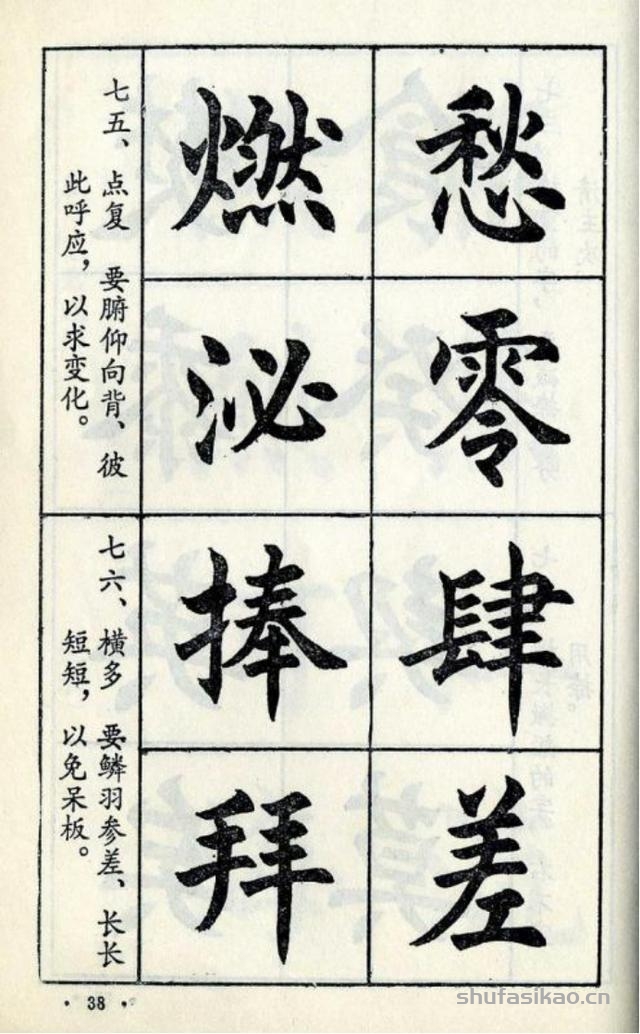 愁零
燃泌
七五、点复　要腑仰向背、彼
此呼应，以求变化。
肆差
捧拜
七六、横多　要鳞羽参差、长长
短短，以免呆板。
·38·
shufasikao.cn